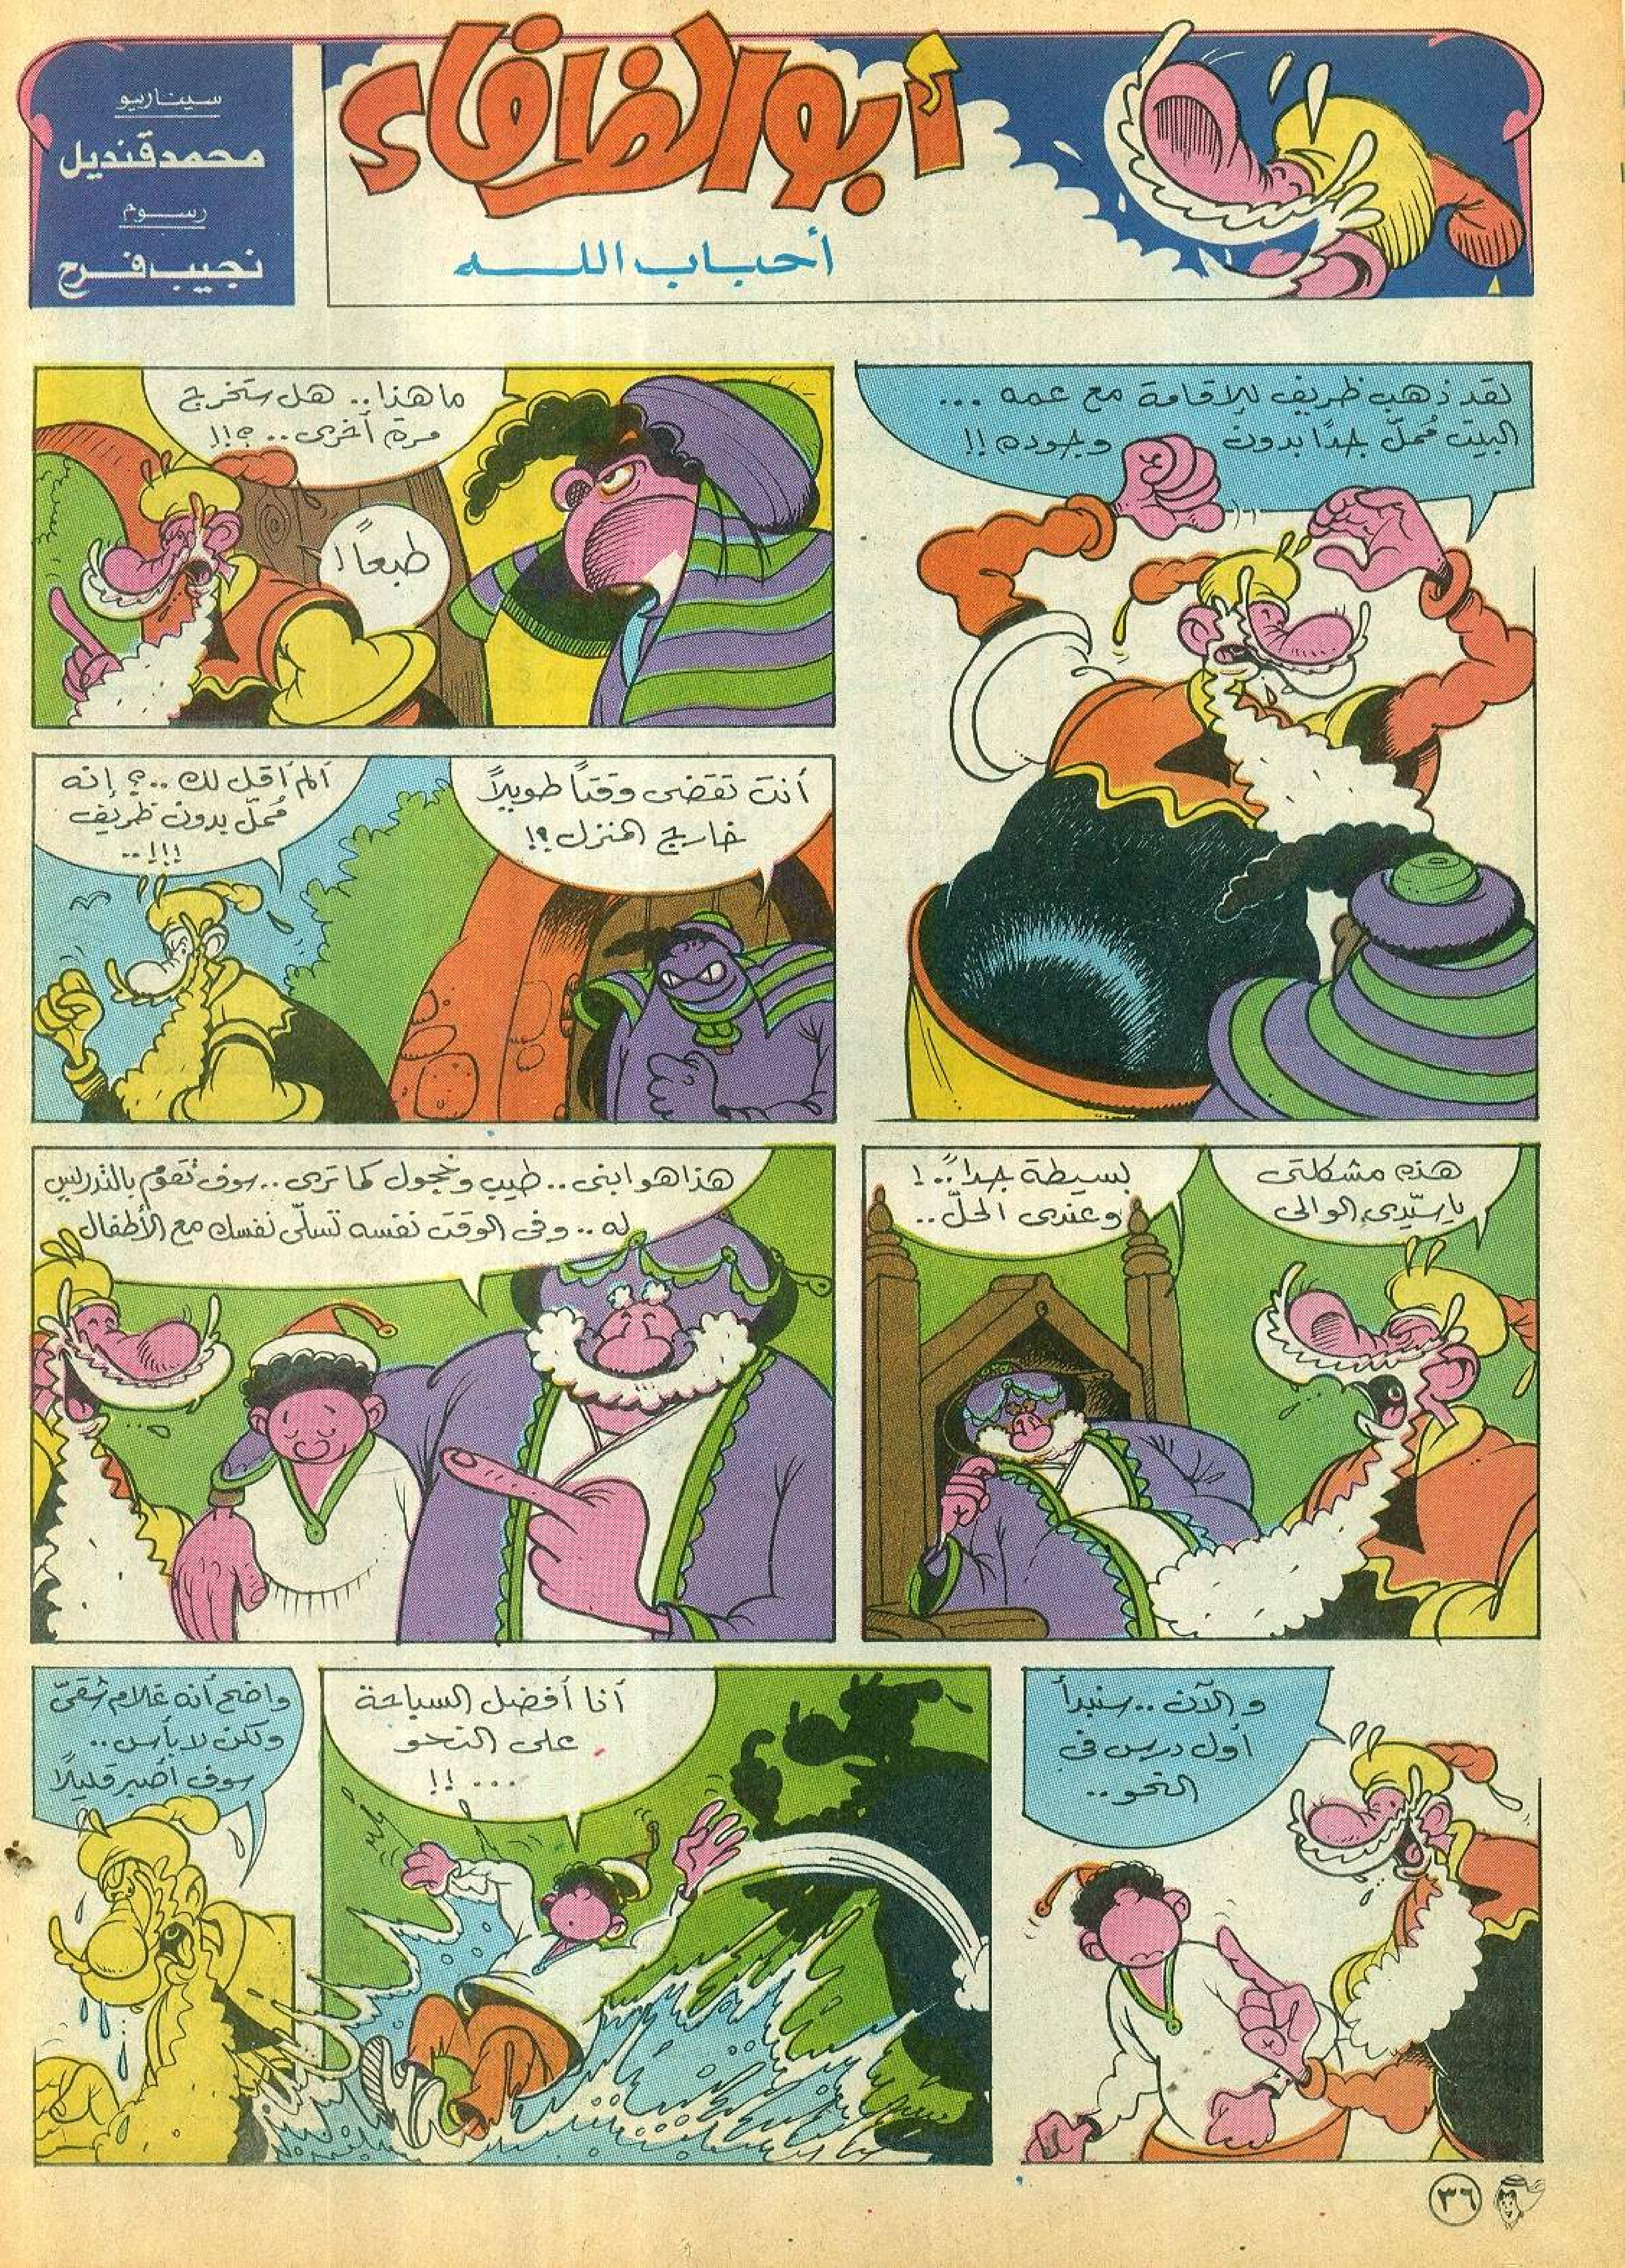 أبو الظرفاء
أحباب الله
سيناريو
محمد قنديل
رسوم
نجيب فرح
لقد ذهب ظريف للإقامة مع عمه ...
البيت مُملّ جدًا بدون وجوده !!
ما هذا .. هل ستخرج
مرة أخرى .. ؟!!
طبعاً !
أنت تقضى وقتاً طويلاً
خارج المنزل ؟!
ألم أقل لك .. ؟ إنه
مُملّ بدون ظريف
..!!!
هذه مشكلتى
يا سيّدى الوالى
بسيطة جداً .. !
وعندى الحلّ ..
هذا هو ابنى .. طيب وخجول كما ترى .. سوف تقوم بالتدريس
له .. وفى الوقت نفسه تسلّى نفسك مع الأطفال
و الآن .. سنبدأ
أول درس فى
النحو ..
أنا أفضل السباحة
على النحو
... !!
واضح أنه غلام شقىّ
ولكن لا بأس ..
سوف أصبر قليلاً
٣٦